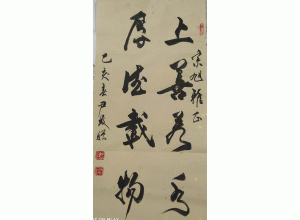 宋旭雅正
上善若水
厚德載物
己亥春尹成联